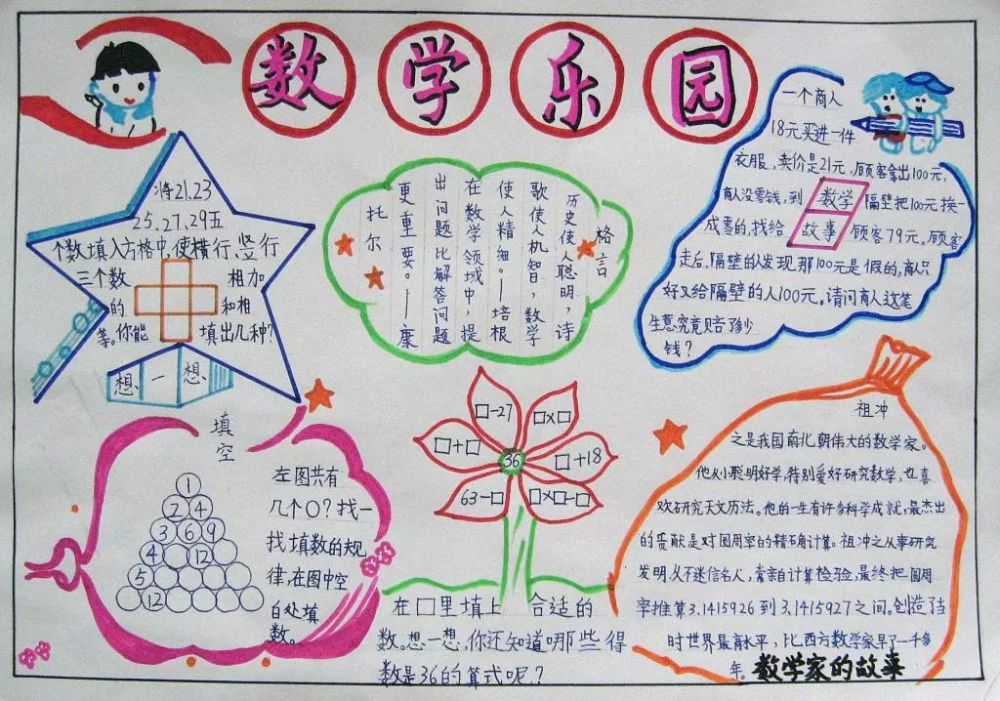 数学乐园
将21.23
25.27.29五
个数填入方格中,使横行、竖行
三个数 相加
的 和相
等。你能 填出几种?
想一想
格言
历史使人聪明,诗
歌使人机智,数学
使人精细。—培根
在数学领域中,提
出问题比解答问题
更重要。—康
托尔
一个商人
18元买进一件
衣服,卖价是21元,顾客拿出100元,
商人没零钱,到 隔壁把100元换一
成零的,找给 顾客79元,顾客
走后,隔壁的发现那100元是假的,商人只
好又给隔壁的人100元。请问商人这笔
生意究竟赔了多少
钱?
数学
故事
填空
①
② ④
③ ⑥ ⑨
④ ⑫
⑤
⑫
左图共有
几个○?找一
找填数的规
律,在图中空
白处填
数。
□-27
□×□
□+□
36
□+18
63-□
□×□-□
在□里填上 合适的
数。想一想,你还知道哪些得
数是36的算式呢?
祖冲
之是我国南北朝伟大的数学家。
他从小聪明好学,特别爱好研究数学,也喜
欢研究天文历法。他的一生有许多科学成就,最杰出
的贡献是对圆周率的精确计算。祖冲之从事研究
发明,从不迷信名人,常亲自计算检验,最终把圆周
率推算3.1415926到3.1415927之间。创造了当
时世界最高水平,比西方数学家早了一千多
年。
数学家的故事